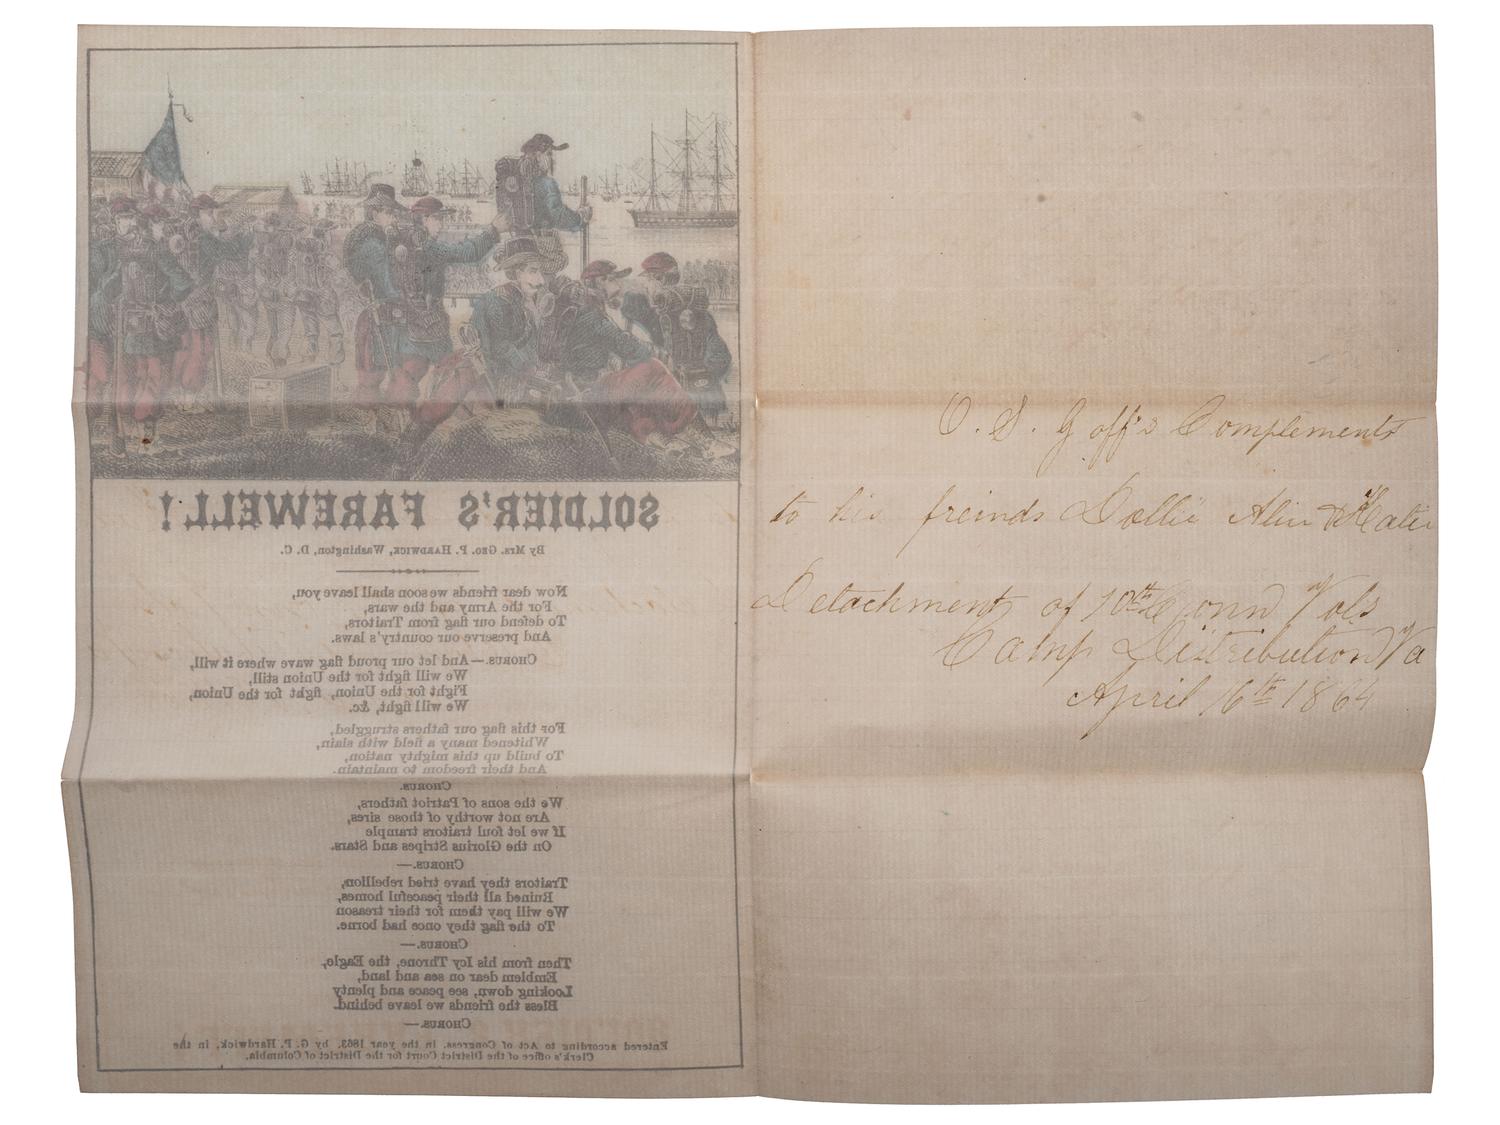 SOLDIER'S FAREWELL!
By Mrs. Geo. P. Hardwick, Washington, D. C.
Now dear friends we soon shall leave you,
For the Army and the wars,
To defend our flag from Traitors,
And preserve our country's laws.
Chorus.—And let our proud flag wave where it will,
We will fight for the Union still,
Fight for the Union, fight for the Union,
We will fight, &c.
For this flag our fathers struggled,
Whitened many a field with slain,
To build up this mighty nation,
And their freedom to maintain.
Chorus.
We the sons of Patriot fathers,
Are not worthy of those sires,
If we let foul traitors trample
On the Glorius Stripes and Stars.
Chorus.—
Traitors they have tried rebellion,
Ruined all their peaceful homes,
We will pay them for their treason
To the flag they once had borne.
Chorus.—
Then from his Icy Throne, the Eagle,
Emblem dear on sea and land,
Looking down, see peace and plenty
Bless the friends we leave behind.
Chorus.—
Entered according to Act of Congress, in the year 1863, by G. P. Hardwick, in the
Clerk's office of the District Court for the District of Columbia.
O. S. Goff's Complements
to his freinds Dollie Alin & Katie
Detachment of 10th Conn Vols
Camp Distribution Va
April 16th 1864